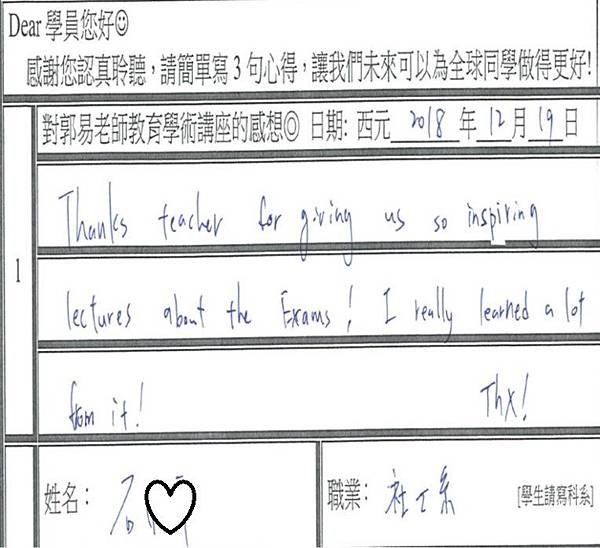 Dear 學員您好☺
感謝您認真聆聽，請簡單寫 3 句心得，讓我們未來可以為全球同學做得更好!
對郭易老師教育學術講座的感想◎ 日期: 西元 2018 年 12 月 19 日
1
Thanks teacher for giving us so inspiring
lectures about the Exams! I really learned a lot
from it! Thx!
姓名：
職業： 社工系 [學生請寫科系]